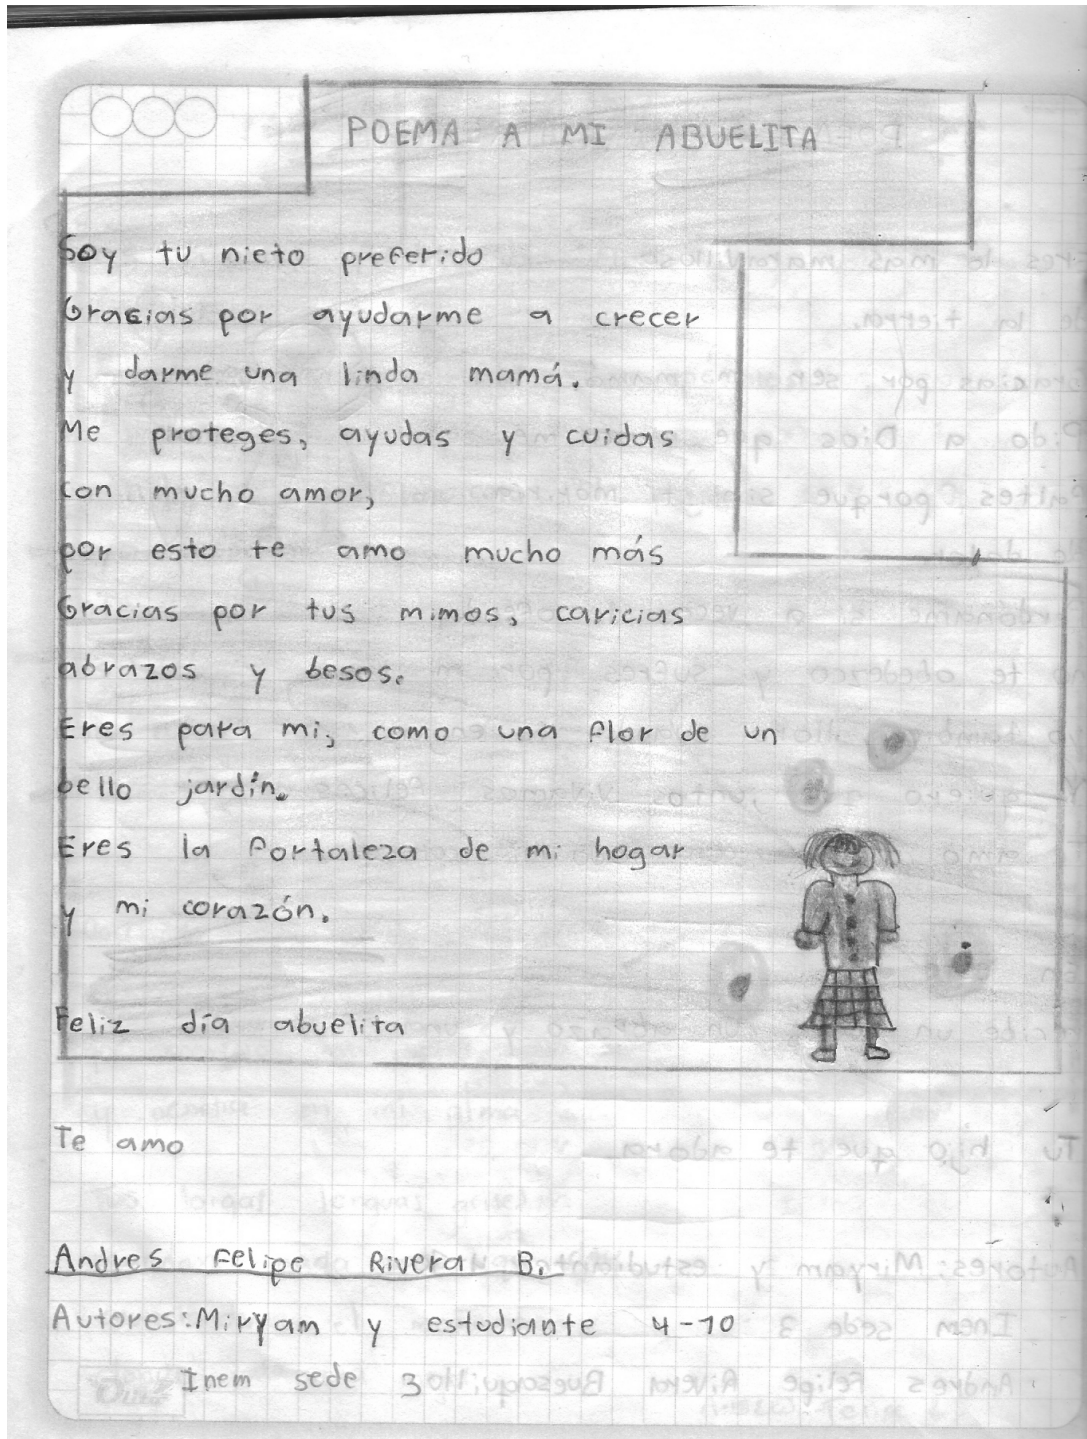 POEMA A MI ABUELITA
Soy tu nieto preferido
Gracias por ayudarme a crecer
y darme una linda mamá.
Me proteges, ayudas y cuidas
con mucho amor,
por esto te amo mucho más
Gracias por tus mimos, caricias
abrazos y besos.
Eres para mi, como una flor de un
bello jardín.
Eres la fortaleza de mi hogar
y mi corazón.
Feliz día abuelita
Te amo
Andres Felipe Rivera B.
Autores: Miryam y estudiante 4-10
Inem sede 3